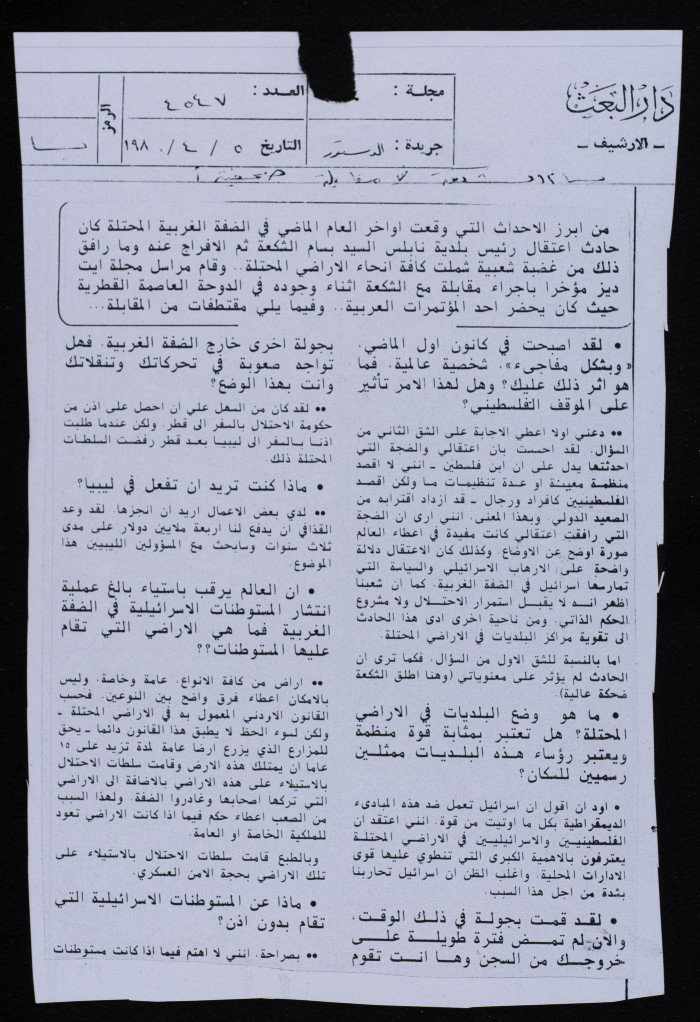 دار البعث
ـ الارشيف ـ
مجلة :
العدد : ٤٥٤٧
الرمز
جريدة : الدستور
التاريخ ٥ / ٤ / ١٩٨٠
من ابرز الاحداث التي وقعت اواخر العام الماضي في الضفة الغربية المحتلة كان
حادث اعتقال رئيس بلدية نابلس السيد بسام الشكعة ثم الافراج عنه وما رافق
ذلك من غضبة شعبية شملت كافة انحاء الاراضي المحتلة.. وقام مراسل مجلة ايت
ديز مؤخرا باجراء مقابلة مع الشكعة اثناء وجوده في الدوحة العاصمة القطرية
حيث كان يحضر احد المؤتمرات العربية.. وفيما يلي مقتطفات من المقابلة...
• لقد اصبحت في كانون اول الماضي،
«وبشكل مفاجىء»، شخصية عالمية، فما
هو اثر ذلك عليك؟ وهل لهذا الامر تأثير
على الموقف الفلسطيني؟
•• دعني اولا اعطي الاجابة على الشق الثاني من
السؤال. لقد احسست بان اعتقالي والضجة التي
احدثتها يدل على ان ابن فلسطين ـ انني لا اقصد
منظمة معينة او عدة تنظيمات ما ولكن اقصد
الفلسطينيين كافراد ورجال ـ قد ازداد اقترابه من
الصعيد الدولي. وبهذا المعنى، انني ارى ان الضجة
التي رافقت اعتقالي كانت مفيدة في اعطاء العالم
صورة اوضح عن الاوضاع. وكذلك كان الاعتقال دلالة
واضحة على الارهاب الاسرائيلي والسياسة التي
تمارسها اسرائيل في الضفة الغربية. كما ان شعبنا
اظهر انه لا يقبل استمرار الاحتلال ولا مشروع
الحكم الذاتي. ومن ناحية اخرى ادى هذا الحادث
الى تقوية مراكز البلديات في الاراضي المحتلة.
اما بالنسبة للشق الاول من السؤال، فكما ترى ان
الحادث لم يؤثر على معنوياتي (وهنا اطلق الشكعة
ضحكة عالية).
• ما هو وضع البلديات في الاراضي
المحتلة؟ هل تعتبر بمثابة قوة منظمة
ويعتبر رؤساء هذه البلديات ممثلين
رسميين للسكان؟
• اود ان اقول ان اسرائيل تعمل ضد هذه المبادىء
الديمقراطية بكل ما اوتيت من قوة. انني اعتقد ان
الفلسطينيين والاسرائيليين في الاراضي المحتلة
يعترفون بالاهمية الكبرى التي تنطوي عليها قوى
الادارات المحلية. واغلب الظن ان اسرائيل تحاربنا
بشدة من اجل هذا السبب.
• لقد قمت بجولة في ذلك الوقت،
والان لم تمض فترة طويلة على
خروجك من السجن وها انت تقوم
بجولة اخرى خارج الضفة الغربية. فهل
تواجه صعوبة في تحركاتك وتنقلاتك
وانت بهذا الوضع؟
•• لقد كان من السهل علي ان احصل على اذن من
حكومة الاحتلال بالسفر الى قطر، ولكن عندما طلبت
اذنا بالسفر الى ليبيا بعد قطر رفضت السلطات
المحتلة ذلك.
• ماذا كنت تريد ان تفعل في ليبيا؟
•• لدي بعض الاعمال اريد ان انجزها. لقد وعد
القذافي ان يدفع لنا اربعة ملايين دولار على مدى
ثلاث سنوات وسابحث مع المسؤولين الليبيين هذا
الموضوع.
• ان العالم يرقب باستياء بالغ عملية
انتشار المستوطنات الاسرائيلية في الضفة
الغربية فما هي الاراضي التي تقام
عليها المستوطنات؟؟
•• اراض من كافة الانواع، عامة وخاصة. وليس
بالامكان اعطاء فرق واضح بين النوعين. فحسب
القانون الاردني المعمول به في الاراضي المحتلة ـ
ولكن لسوء الحظ لا يطبق هذا القانون دائما ـ يحق
للمزارع الذي يزرع ارضا عامة لمدة تزيد على ١٥
عاما ان يمتلك هذه الارض وقامت سلطات الاحتلال
بالاستيلاء على هذه الاراضي بالاضافة الى الاراضي
التي تركها اصحابها وغادروا الضفة. ولهذا السبب
من الصعب اعطاء حكم فيما اذا كانت الاراضي تعود
للملكية الخاصة او العامة.
وبالطبع قامت سلطات الاحتلال بالاستيلاء على
تلك الاراضي بحجة الامن العسكري.
• ماذا عن المستوطنات الاسرائيلية التي
تقام بدون اذن؟
•• بصراحة، انني لا اهتم فيما اذا كانت مستوطنات